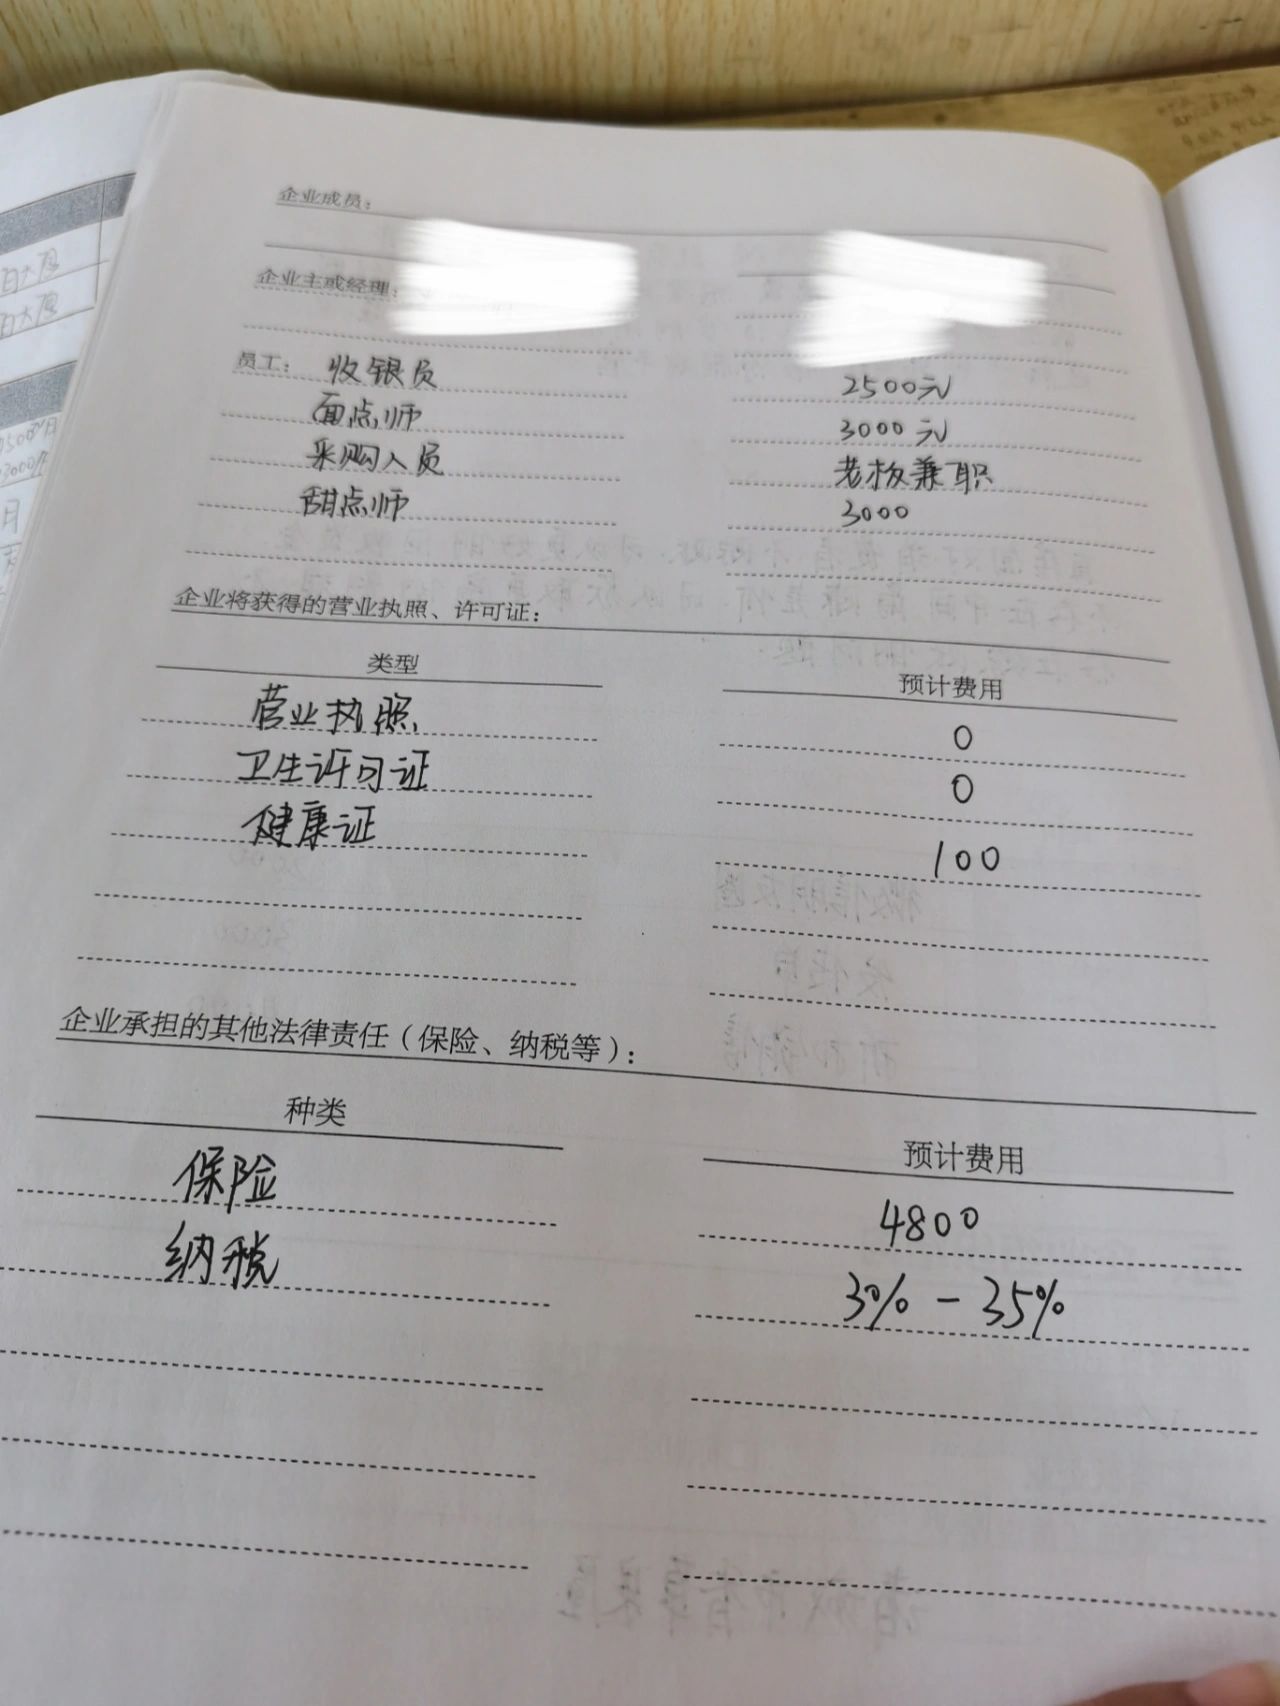 企业成员：
企业主或经理：
员工： 收银员 2500元
面点师 3000元
采购人员 老板兼职
甜点师 3000
企业将获得的营业执照、许可证：
类型 预计费用
营业执照 0
卫生许可证 0
健康证 100
企业承担的其他法律责任（保险、纳税等）：
种类 预计费用
保险 4800
纳税 3% - 35%